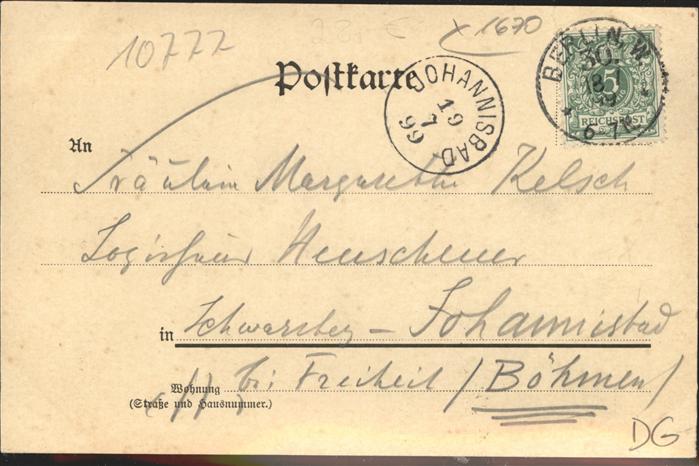 10777
x 1670
Postkarte
JOHANNISBAD
19
7
99
BERLIN, W.
30.
18
99
6-7
5
REICHSPOST
An
Fräulein Margarethe Kelsch
Logirhaus
in Schwarzberg – Johannisbad
Wohnung bei Freiheit / Böhmen /
(Straße und Hausnummer.)
DG